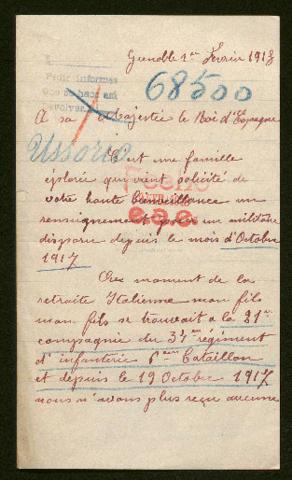 Grenoble 1er Fevrier 1918
Pedir informes
que se hace así
68500
A sa Majestée le Roi d'Espagne
Ussorio
C'est une famille
éplorée qui vient solicité de
votre haute bienveillance un
renseignement pour un militaire
disparue depuis le mois d'Octobre
1917
e.a.e.
Au moment de la
retraite Italienne mon fils
mon fils se trouvait a la 21e
compagnie du 37me regiment
d'infanterie 6eme Bataillon
et depuis le 19 Octobre 1917
nous n'avons plus reçu aucune